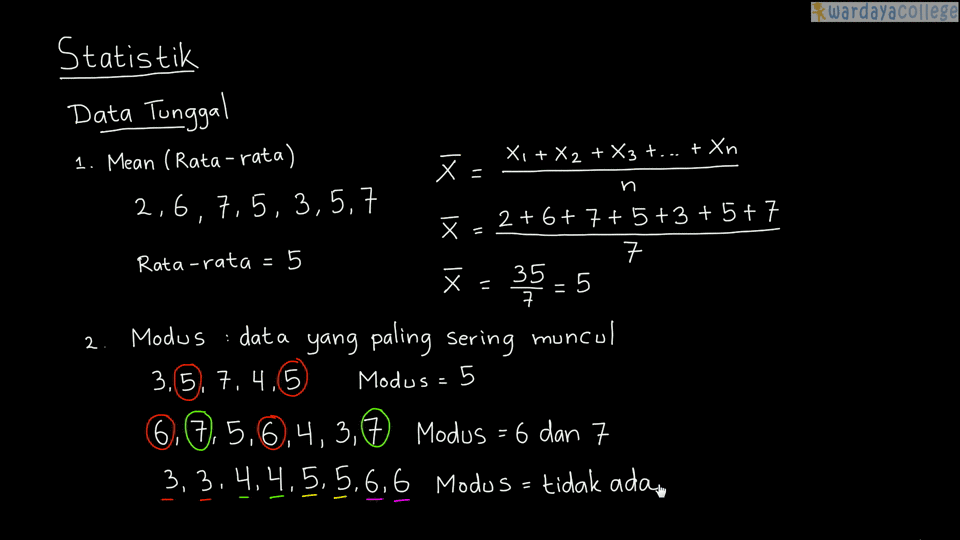 wardayacollege
Statistik
Data Tunggal
1. Mean (Rata-rata)
2, 6, 7, 5, 3, 5, 7
Rata-rata = 5
X̄ = (X₁ + X₂ + X₃ + ... + Xn) / n
X̄ = (2 + 6 + 7 + 5 + 3 + 5 + 7) / 7
X̄ = 35/7 = 5
2. Modus : data yang paling sering muncul
3, 5, 7, 4, 5 Modus = 5
6, 7, 5, 6, 4, 3, 7 Modus = 6 dan 7
3, 3, 4, 4, 5, 5, 6, 6 Modus = tidak ada